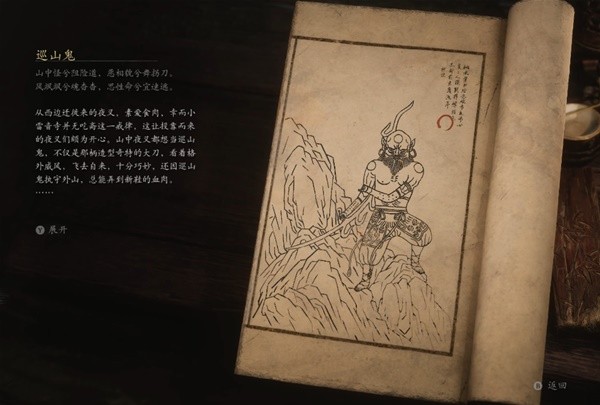 巡山鬼
山中怪兮阻险道，恶相貌兮舞拐刀。
风飒飒兮魂杳杳，性命兮宜速逃。
从西边迁徙来的夜叉，素爱食肉，幸而小
雷音寺并无吃斋这一戒律，这让投靠而来
的夜叉们颇为开心。山中夜叉都想当巡山
鬼，不仅是那柄造型奇特的大刀，看着格
外威风，飞去自来，十分巧妙，还因巡山
鬼执守外山，总能弄到新鲜的血肉。
……
Y 展开
B 返回